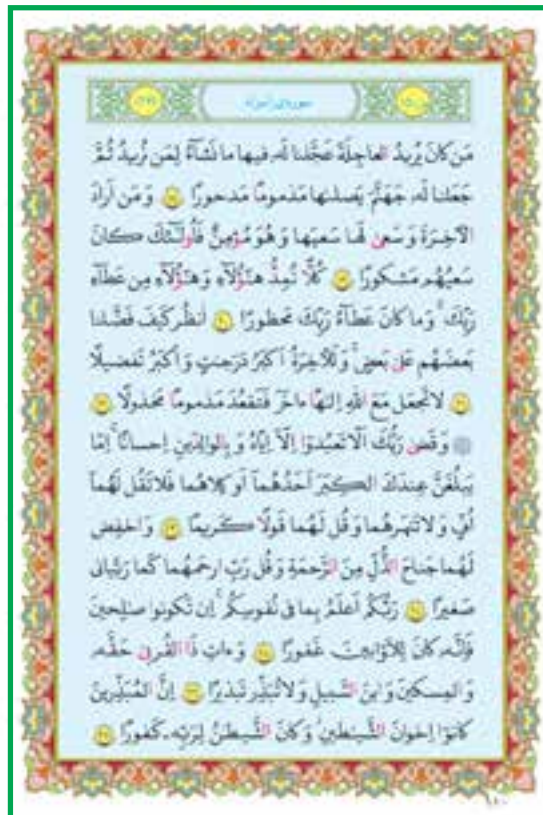 سوره‌ی اسراء
مَن كانَ يُريدُ العاجِلَةَ عَجَّلنا لَه‌و فيها ما نَشآءُ لِمَن نُريدُ ثُمَّ
جَعَلنا لَه‌و جَهَنَّمَ يَصلىٰها مَذمومًا مَدحورًا ۝١٨ وَ مَن اَرادَ
الآخِرَةَ وَ سَعىٰ لَها سَعيَها وَ هُوَ مُؤمِنٌ فَاُولٰٓئِكَ كانَ
سَعيُهُم مَشكورًا ۝١٩ كُلًّا نُمِدُّ هٰٓؤُلآءِ وَ هٰٓؤُلآءِ مِن عَطآءِ
رَبِّكَ ۚ وَ ما كانَ عَطآءُ رَبِّكَ مَحظورًا ۝٢٠ اُنظُر كَيفَ فَضَّلنا
بَعضَهُم عَلىٰ بَعضٍ ۚ وَ لَلآخِرَةُ اَكبَرُ دَرَجٰتٍ وَ اَكبَرُ تَفضيلًا
۝٢١ لا تَجعَل مَعَ اللهِ اِلٰهًا ءاخَرَ فَتَقعُدَ مَذمومًا مَخذولًا ۝٢٢
۞ وَ قَضىٰ رَبُّكَ اَلّا تَعبُدوٓا اِلّآ اِيّاهُ وَ بِالوالِدَينِ اِحسانًا ۚ اِمّا
يَبلُغَنَّ عِندَكَ الكِبَرَ اَحَدُهُمآ اَو كِلاهُما فَلا تَقُل لَهُمآ
اُفٍّ وَ لا تَنهَرهُما وَ قُل لَهُما قَولًا كَريمًا ۝٢٣ وَ اخفِض
لَهُما جَناحَ الذُّلِّ مِنَ الرَّحمَةِ وَ قُل رَبِّ ارحَمهُما كَما رَبَّيانى
صَغيرًا ۝٢٤ رَبُّكُم اَعلَمُ بِما فى نُفوسِكُم ۚ اِن تَكونوا صٰلِحينَ
فَاِنَّه‌و كانَ لِلاَوّابينَ غَفورًا ۝٢٥ وَ ءاتِ ذَا القُربىٰ حَقَّه‌و
وَ المِسكينَ وَ ابنَ السَّبيلِ وَ لا تُبَذِّر تَبذيرًا ۝٢٦ اِنَّ المُبَذِّرينَ
كانوٓا اِخوانَ الشَّيٰطينِ ۖ وَ كانَ الشَّيطٰنُ لِرَبِّه‌ى كَفورًا ۝٢٧